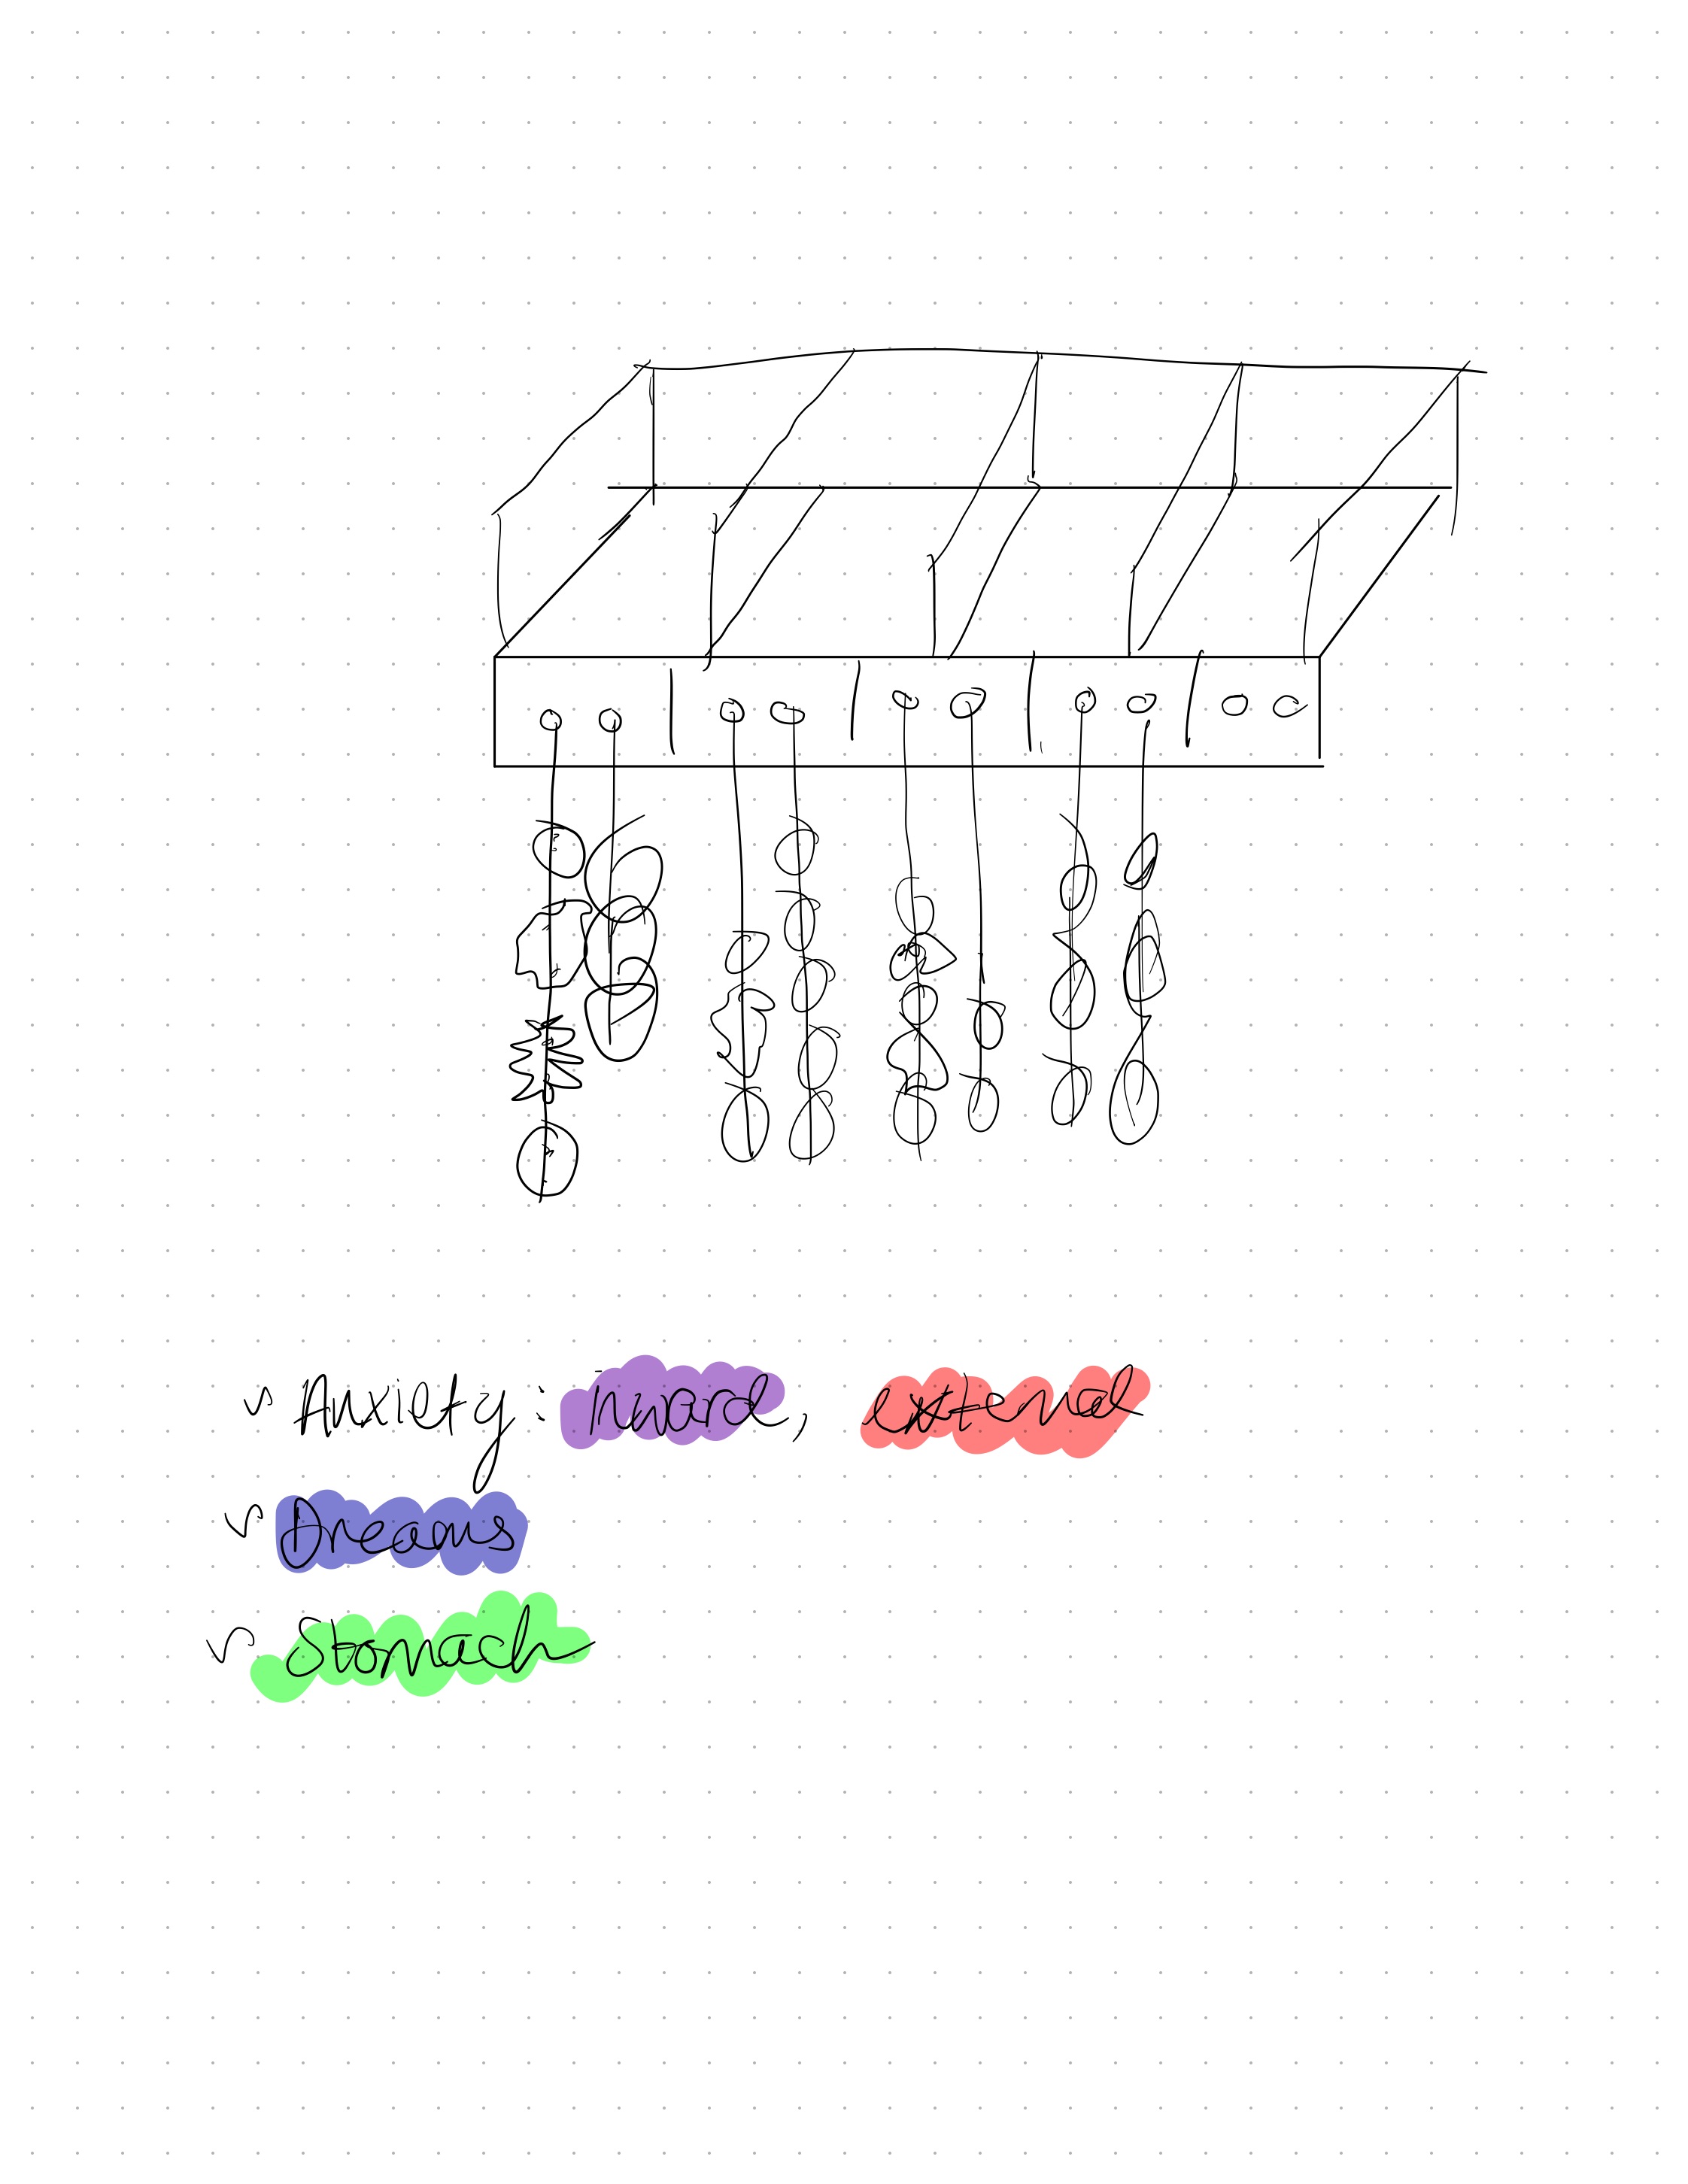 Anxiety: inward, external
Dreams
Stomach